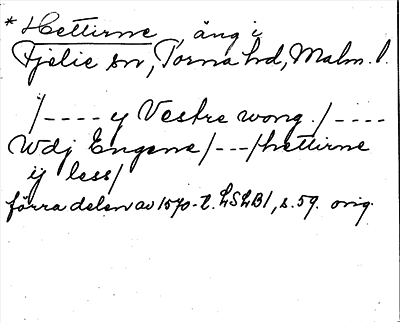 * Hettirne, äng i
Fjelie sn, Torna hd, Malm. l.
/---- y Vestre wong./----
Wdj Engene/---/hettirne
ij less/
förra delen av 1570-t. LSLB1, s. 59. orig.